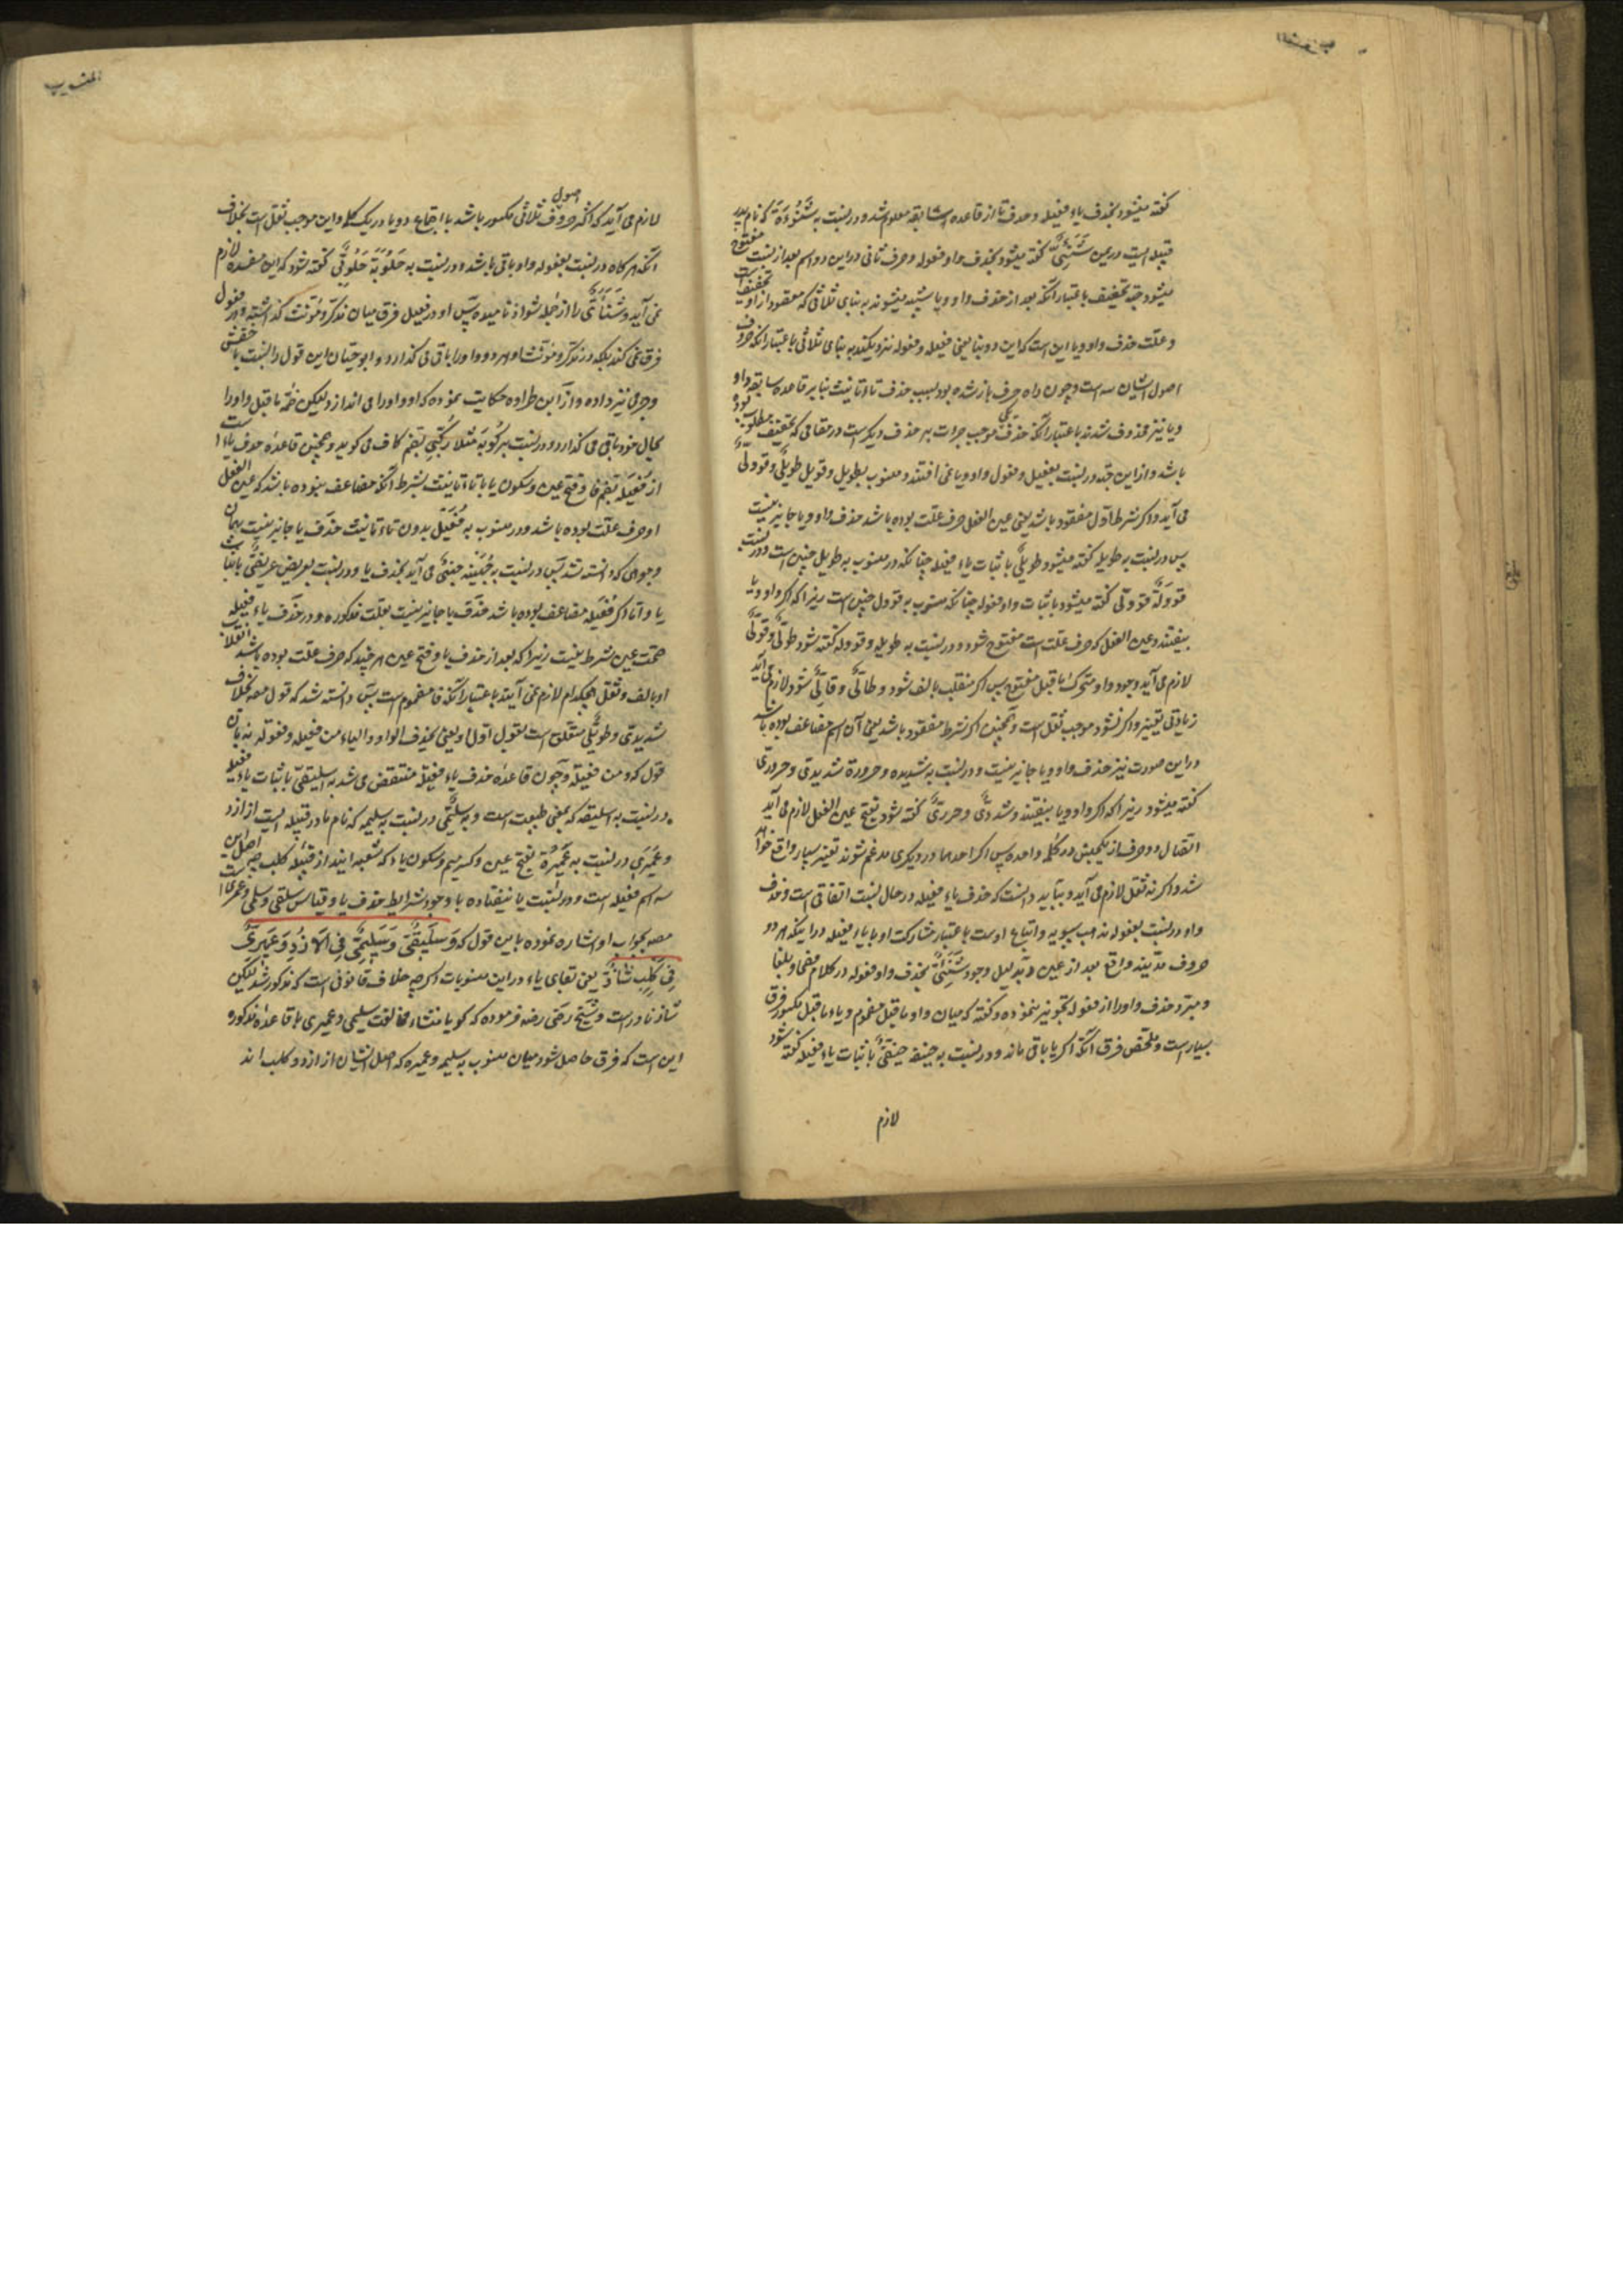 المنسوب
کفته میشود بحذف یاء فعیله و حذف تا از قاعده سابقه معلوم شد و در نسبت به شَنُوءَة که نام پدر
قبیله ایست در یمن شَنَئِیٌّ کفته میشود بحذف واو فعوله و حرف ثانی در این دو اسم بعد از نسبت مفتوح
میشود جهة تخفیف باعتبار آنکه بعد از حذف واو و یا شبیه میشوند به بنای ثلاثی که مقصود از او تخفیفست
و علت حذف واو و یا این است که این دو بنا یعنی فعیله و فعوله نزدیکند به بنای ثلاثی باعتبار آنکه حروف
اصول ایشان سه است و چون راه حرف باز شده بود بسبب حذف تاء تانیث بنابر قاعده سابقه واو
و یا نیز محذوف شدند باعتبار آنکه حذف یکی موجب جرات بر حذف دیکر است در مقامی که تخفیف مطلوب بوده
باشد و از این جهة در نسبت بفعیل و فعول واو و یا نمی افتند و منسوب بطویل و قویل طویلیّ و قوولیّ
می آید و اکر شرط اول مفقود باشد یعنی عین الفعل حرف علت بوده باشد حذف واو و یا جایز نیست
پس در نسبت به طویله کفته میشود طویلیّ باثبات یاء فعیله چنانکه در منسوب به طویل چنین است و در نسبت
قوولة قوولیّ کفته میشود باثبات واو فعوله چنانکه منسوب به قوول چنین است زیرا که اکر واو و یا
بیفتند و عین الفعل که حرف علت است مفتوح شود و در نسبت به طویله و قووله کفته شود طولیّ و قولیّ
لازم می آید وجود واو متحرک ما قبل مفتوح پس اکر منقلب بالف شود و طالیّ و قالیّ شود لازم می آید
زیادتی تغییر و اکر نشود موجب ثقل است و همچنین اکر شرط مفقود باشد یعنی آن اسم مضاعف بوده باشد
در این صورت نیز حذف واو و یا جایز نیست و در نسبت به شدیده و حرورة شدیدی و حروری
کفته میشود زیرا که اکر واو و یا بیفتند و شددیّ و حرریّ کفته شود بفتح عین الفعل لازم می آید
اتصال دو حرف از یکجنس در کلمه واحده پس اکر احدهما در دیکری مدغم شوند تغییر بسیار واقع خواهد
شد و اکر نه ثقل لازم می آید و بباید دانست که حذف یاء فعیله در حال نسبت اتفاقی است و حذف
واو در نسبت بفعوله مذهب سیبویه و اتباع اوست باعتبار مشارکت او با یاء فعیله در اینکه هر دو
حروف مدینه واقع بعد از عین و بدلیل وجود شَنَئِیٌّ بحذف واو فعوله در کلام فصحا و بلغا
و مبرد حذف واو را از فعوله تجویز ننموده و کفته که میان واو ما قبل مضموم و یاء ما قبل مکسور فرق
بسیار است و ملخص فرق آنکه اکر یا باقی ماند و در نسبت به حنیفه حنیفیّ باثبات یاء فعیله کفته شود
لازم
المنسوب
لازم می آید که اکثر حروف اصول ثلاثی مکسور باشد با اجتماع دو یا در یک کلمه و این موجب ثقل است بخلاف
آنکه هرکاه در نسبت بفعوله واو باقی باشد و در نسبت به حَلُوبَة حَلُوبِیّ کفته شود که این مفسده لازم
نمی آید و شَنَائیّ را از جمله شواذ نامیده پس او در فعیل فرق میان مذکر و مؤنث کذاشته و در فعول
فرق نمی کند بلکه در مذکر و مؤنث او هر دو واو را باقی می کذارد و ابو حیان این قول را نسبت باخفش
و جرمی نیز داده و از ابن طراوه حکایت نموده که او واو را می اندازد لیکن ضمه ما قبل واو را
بحال خود باقی می کذارد و در نسبت برکوبة مثلا رکبی بضم کاف می کوید و همچنین قاعده حذف یاء است
از فُعَیلَه بضم فا و فتح عین و سکون یا با تاء تانیث بشرط آنکه مضاعف نبوده باشد که عین الفعل
او حرف علت بوده باشد و در منسوب به فُعَیل بدون تاء تانیث حذف یا جایز نیست بهمان
وجوهی که دانسته شد پس در نسبت به جُهَینه جهنیّ می آید بحذف یا و در نسبت بعریض عریضیّ باثبات
یا و اما اکر فُعَیله مضاعف بوده باشد حذف یا جایز نیست بعلت مذکوره و در حذف یاء فعیله
صحت عین شرط نیست زیرا که بعد از حذف یا و فتح عین هر چند که حرف علت بوده باشد انقلاب
او بالف و ثقل هیچکدام لازم نمی آیند باعتبار آنکه فا مضموم است پس دانسته شد که قول مصه بخلاف
شدیدی و طویلی متعلق است بقول اول او یعنی بحذف الواو و الیاء من فعیله و فعوله نه بان
قول که و من فعیلة و چون قاعده حذف یاء فعیله منتقض می شد به سلیقیّ باثبات یاء فعیله
در نسبت به سلیقه که بمعنی طبیعت است و به سلیمیّ در نسبت به سلیمه که نام مادر قبیله ایست از ازد
و عَمِیری در نسبت به عَمِیرَة بفتح عین و کسر میم و سکون یاء که شعبه ایند از قبیله کلب چه اصل این
سه اسم فعیله است و در نسبت یا نیفتاده با وجود شرایط حذف یا و قیاس سلقی و سلمی و عمری است
مصه بجواب او اشاره نموده باین قول که وَسَلِیقِیٌّ وَسَلِیمِیٌّ فِی الاَزْدِ وَعَمِیرِیٌّ
فِی کَلْبٍ شَاذٌّ یعنی بقای یاء در این منسوبات اکرچه خلاف قانونی است که مذکور شد لیکن
شاذ نادر است و شیخ رضی رضه فرموده که کویا منشاء مخالفت سلیمی و عمیری با قاعده مذکوره
این است که فرق حاصل شود میان منسوب به سلیمه و عمیره که اصل ایشان از ازد و کلب اند